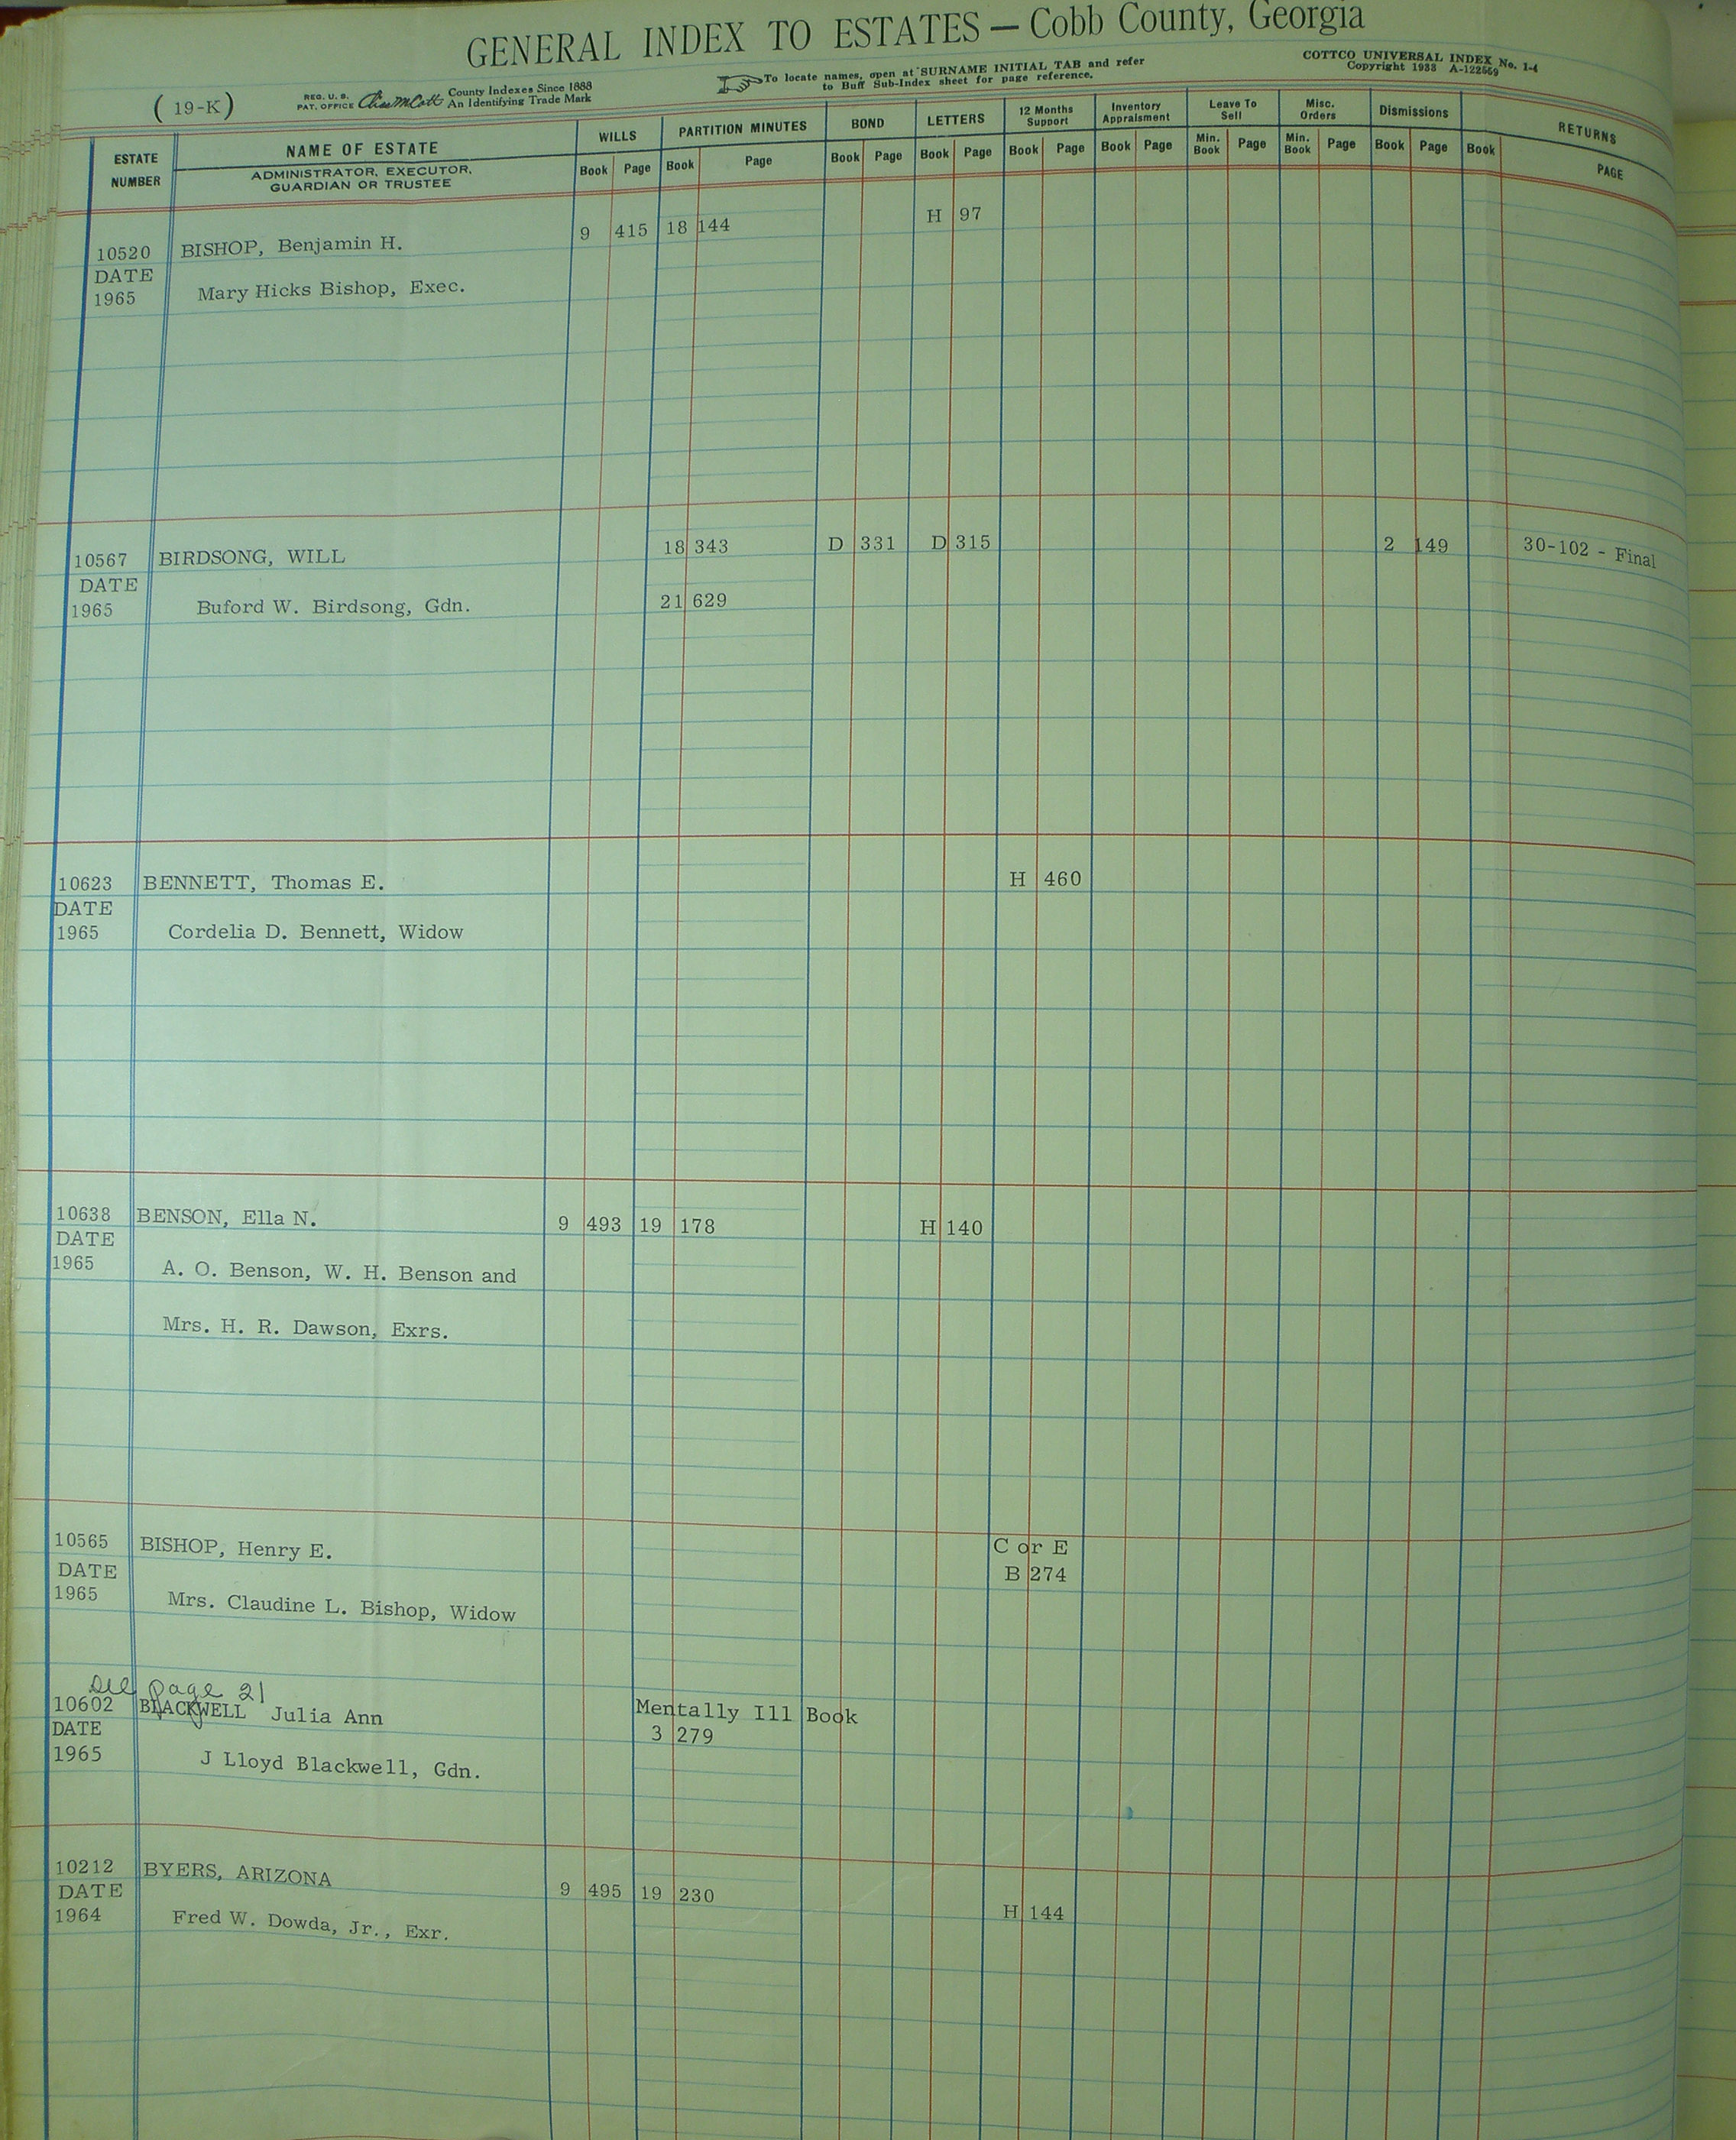 GENERAL INDEX TO ESTATES — Cobb County, Georgia
(19-K)
REG. U. S. PAT. OFFICE
County Indexes Since 1888
An Identifying Trade Mark
To locate names, open at SURNAME INITIAL TAB and refer
to Buff Sub-Index sheet for page reference.
COTTCO UNIVERSAL INDEX No. 1-4
Copyright 1933 A-122559
ESTATE NUMBER
NAME OF ESTATE
ADMINISTRATOR, EXECUTOR,
GUARDIAN OR TRUSTEE
WILLS PARTITION MINUTES BOND LETTERS 12 Months Support Inventory Appraisment Leave To Sell Misc. Orders Dismissions RETURNS
Book Page Book Page Book Page Book Page Book Page Book Page Min. Book Page Min. Book Page Book Page Book PAGE
10520 BISHOP, Benjamin H. 9 415 18 144 H 97
DATE
1965 Mary Hicks Bishop, Exec.
10567 BIRDSONG, WILL 18 343 D 331 D 315 2 149 30-102 - Final
DATE
1965 Buford W. Birdsong, Gdn. 21 629
10623 BENNETT, Thomas E. H 460
DATE
1965 Cordelia D. Bennett, Widow
10638 BENSON, Ella N. 9 493 19 178 H 140
DATE
1965 A. O. Benson, W. H. Benson and
Mrs. H. R. Dawson, Exrs.
10565 BISHOP, Henry E. C or E
DATE B 274
1965 Mrs. Claudine L. Bishop, Widow
See page 21
10602 BLACKWELL Julia Ann Mentally Ill Book
DATE 3 279
1965 J Lloyd Blackwell, Gdn.
10212 BYERS, ARIZONA 9 495 19 230
DATE H 144
1964 Fred W. Dowda, Jr., Exr.